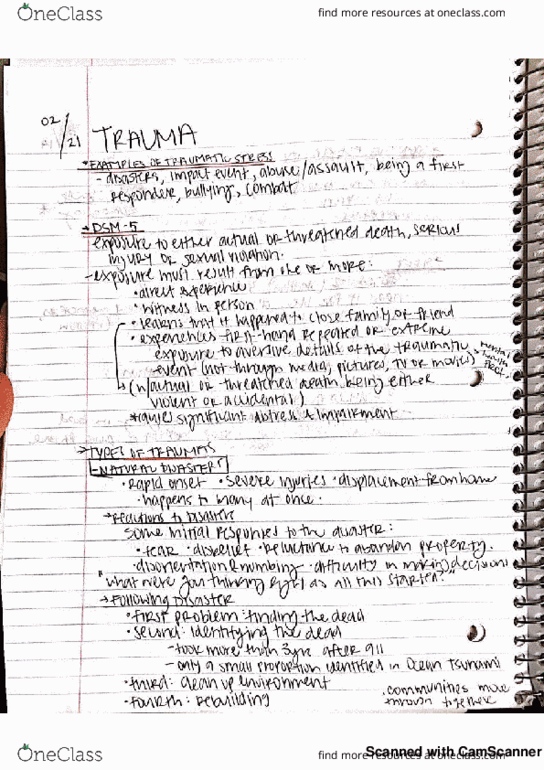 OneClass
find more resources at oneclass.com
02/21 TRAUMA
• EXAMPLES OF TRAUMATIC STRESS
- disasters, impact event, abuse/assault, being a first
responder, bullying, combat
→ DSM-5
exposure to either actual or threatened death, serious
injury or sexual violation.
- exposure must result from one or more:
• direct experience
• witness in person
• learns that it happened to close family or friend
• experiences first-hand repeated or extreme
exposure to aversive details of the traumatic
event (not through media, pictures, TV or movies)
(w/ actual or threatened death being either
violent or accidental)
significant distress & impairment
→ TYPES OF TRAUMAS
- NATURAL DISASTERS
• rapid onset • severe injuries • displacement from home
• happens to many at once.
→ reactions to disasters
some initial responses to the disaster:
• fear • disbelief • reluctance to abandon property.
• disorientation & numbing • difficulty in making decisions
"what were you thinking right as all this started?"
→ FOLLOWING DISASTER
• first problem: finding the dead
• second: identifying the dead
- took more than 3yrs after 911
- only a small proportion identified in Ocean Tsunami
• third: clean up environment
• fourth: rebuilding
. communities move
through together
OneClass
find more resources at oneclass.com
Scanned with CamScanner